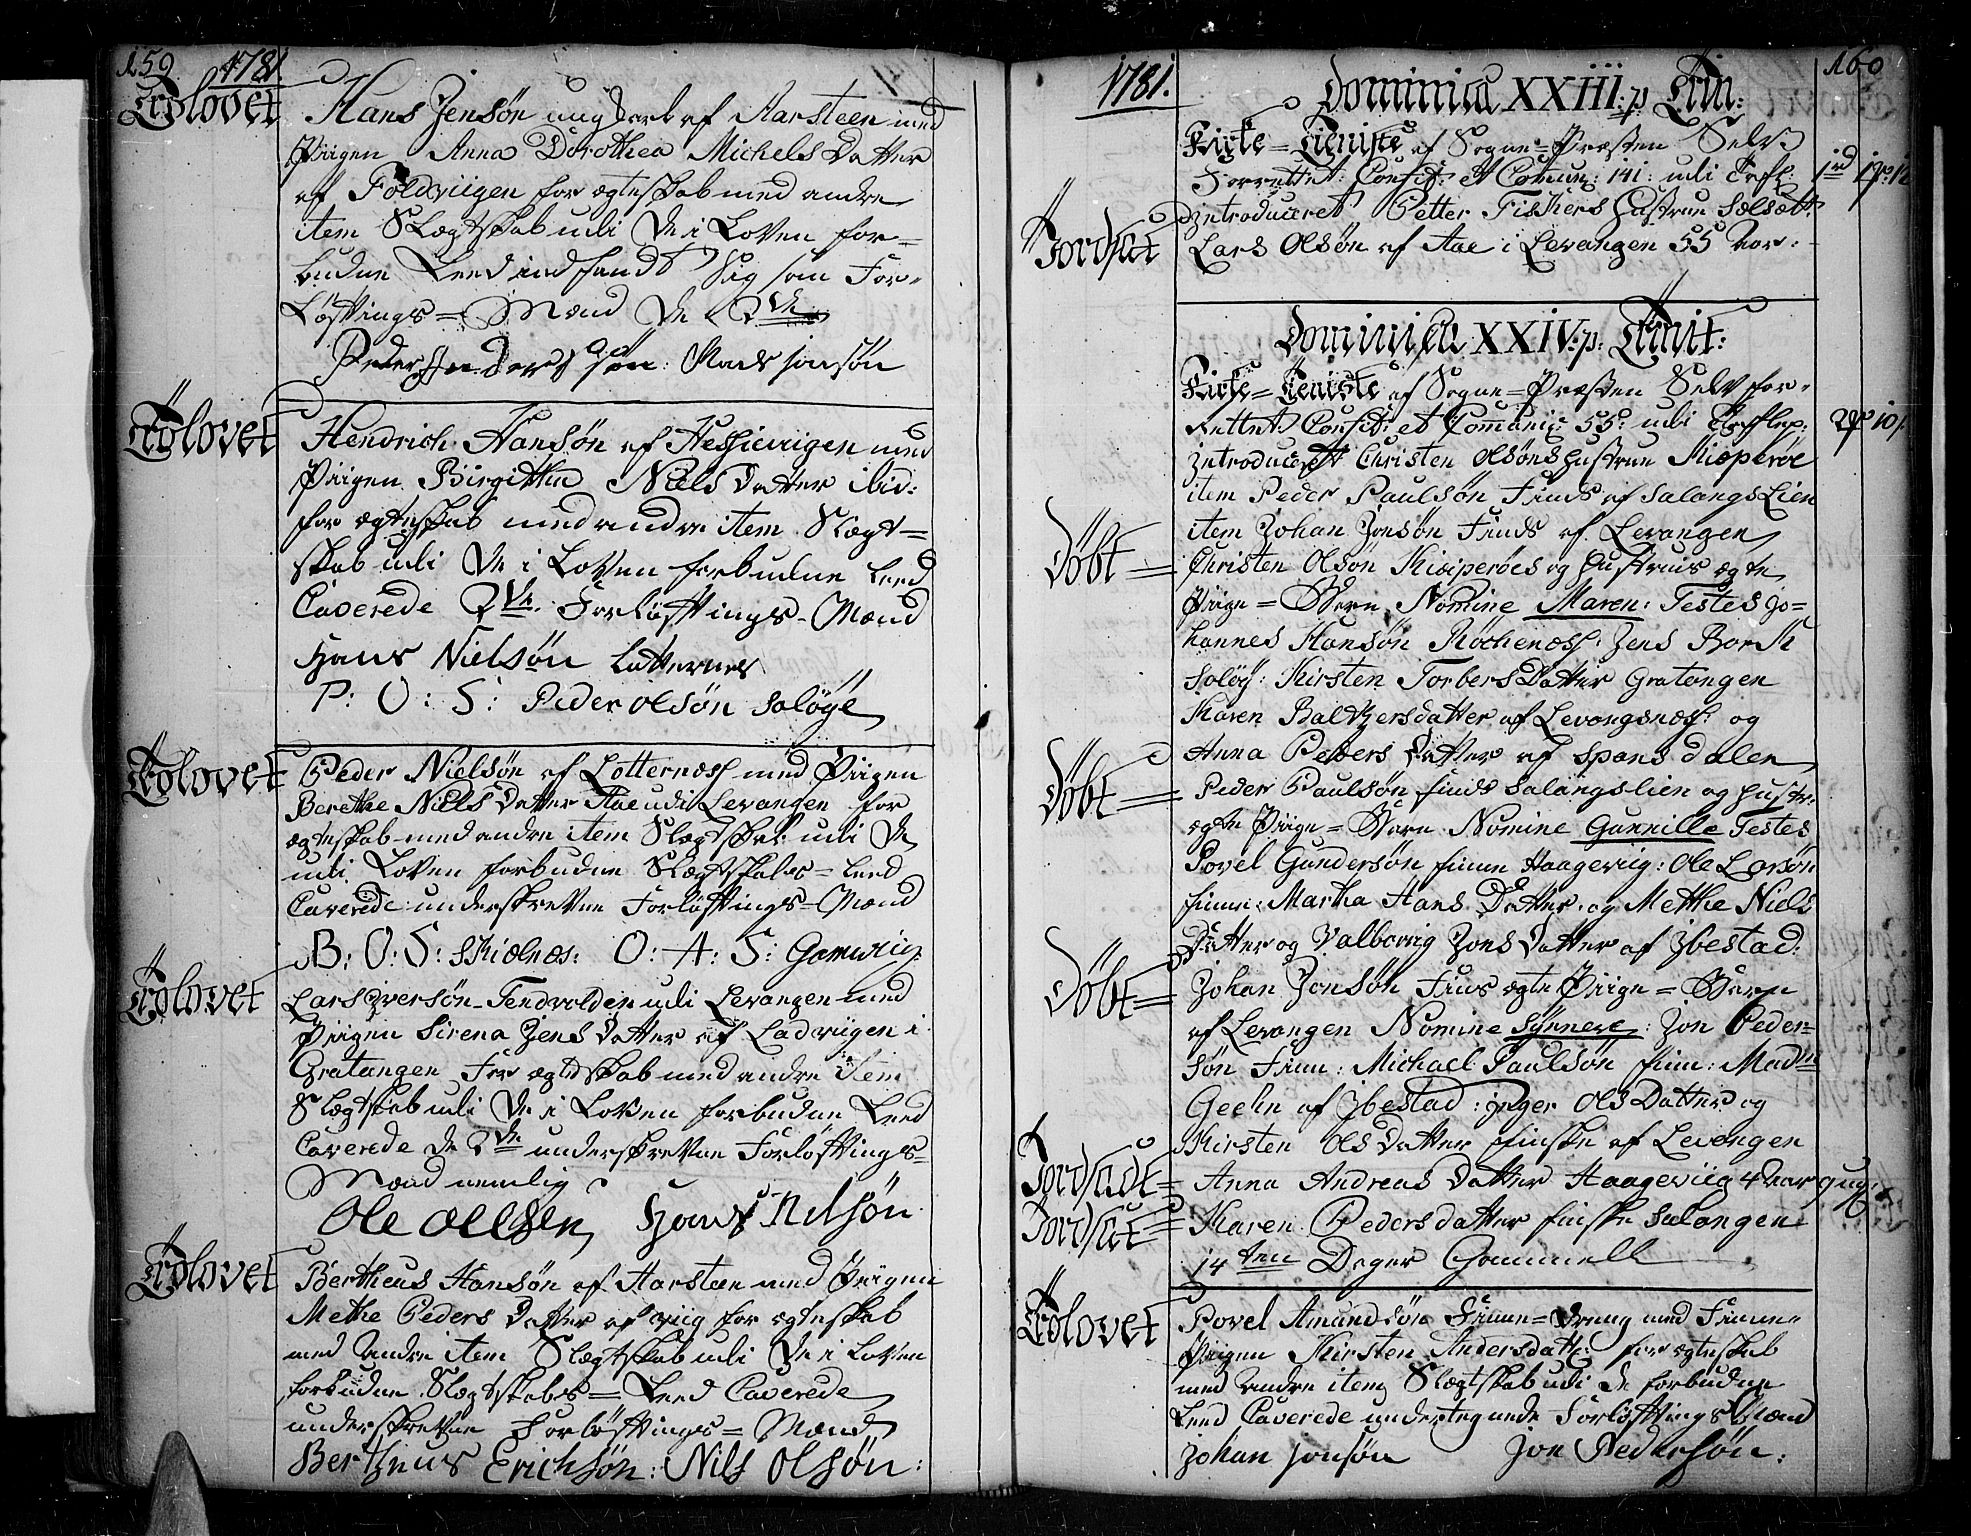 159 1781
Trolovet Hans Jensøn ungkarl af Aarsteen med
Piigen Anna Dorothea Michels Datter
af Foldviigen for ægteskab med andre
item Slægtskab udi de i Loven for-
budne Leed indfandt Sig som For-
Løftings-Mænd de 2de
Peder Andersøn: Mads Jonsøn
Trolovet Hendrich Hansøn af Hessieviigen med
Piigen Birgitha Niels Datter ibid:
for ægteskab med andre item Slægt-
skab udi de i Loven forbudne Leed
Caverede 2de Forløftings-Mænd
Hans Nielsøn Lotternes
P: O: S: Peder Olsøn Saløye
Trolovet Peder Nielsøn af Lotternæss med Piigen
Berethe Niels Datter Aae udi Levangen for
ægteskab med andre item Slægtskab udi De
udi Loven forbudne Slægtskabs-Leed
Caverede underskrevne Forløftings-Mænd
B: O: S: Skiælnæs: O: A: S: Gamviig.
Trolovet Lars Iversøn Tendvolden udi Levangen med
Piigen Sirena Jens Datter af Ladviigen i
Gratangen For ægteskab med andre item
Slægtskab udi De i Loven forbudne Leed
Caverede de 2de underskrevne Forløftings-
Mænd nemlig
Ole Oelsen Hans Nilsøn
Trolovet Bertheus Hansøn af Aarstæn med Piigen
Methe Peders Datter af Viig for ægteskab
med andre item Slægtskab udi De i Loven
forbudne Slægtskabs-Leed Caverede
underskrevne Forløftings-Mænd
Bertheus Erichsøn: Nils Olsøn:
1781. Dominica XXIII. p. Trin: 160
Kirke-Tieniste af Sogne-Præsten Selv
Forrettet: Confit: et Comun: 141: udi Tafl.
Introduceret Petter Fiskers Hustrue
Jordsat Lars Olsøn af Aae i Levangen 55 Aar:
Dominica XXIV. p. Trinit:
Kirke-Tieniste af Sogne-Præsten Selv for-
rettet Confit: et Comunic: 55: udi
Introduceret Christen Olsøns Hustrue Kisperøe
item Peder Paulsøn Finds af Salangs Lien
item Johan Jonsøn Finds af Levangen
Døbt = Christen Olsøn Kisiperøes og Hustrues ægte
Piige-Barn Nomine Maren: Testes Jo-
hannes Hansøn Røchenæss: Jens Bork
Soløy: Kirsten Torbers Datter Gratangen
Karen Baltzersdatter af Levangsnæss: og
Anna Peders Datter af Spansdalen
Døbt = Peder Paulsøn Finds Salangslien og Hustr:
ægte Piige-Barn Nomine Gunnille Testes
Povel Gundersøn Finn Haageviig: Ole Larsøn
Finn: Martha Hans Datter og Methe Niels
Datter og Valborrig Jons Datter af Ibestad:
Døbt = Johan Jonsøn Fins ægte Piige-Barn
af Levangen Nomine Synneve: Jon Peder-
søn Finn: Michael Paulsøn Finn: Madme
Geehn af Ibestad: Inger Ols Datter og
Kirsten Ols Datter Finske af Levangen
Jordsadt = Anna Andreas Datter Haageviig 4 Aar 9 ug:
Jordsat = Karen Peders datter finske Salangen
14ten Dager Gammell
Trolovet Povel Amundsøn Finne-Dreng med Finne-
Piigen Kirsten Andersdatt: for ægteskab
med andre item Slægtskab udi de forbudne
Leed Caverede undertegnede Forløftings Mænd
Johan Jonsøn Jon Pedersøn: